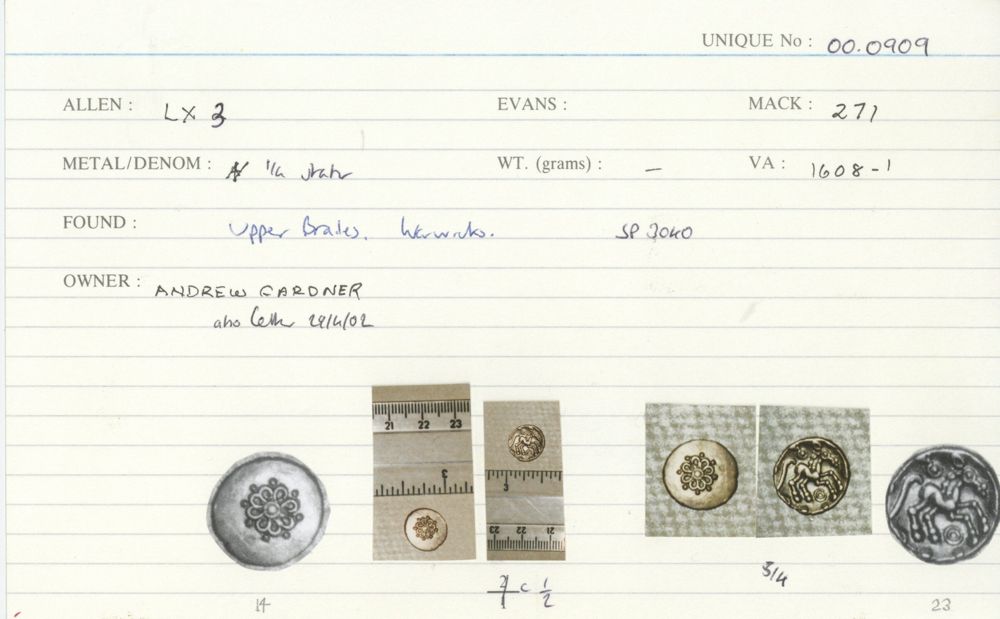 UNIQUE No : 00.0909
ALLEN : LX 3 EVANS : MACK : 271
METAL/DENOM : N 1/4 stater WT. (grams) : — VA : 1608-1
FOUND : Upper Brailes, Warwicks. SP 3040
OWNER : ANDREW GARDNER
also letter 29/4/02
21 22 23
3
3
23 22 21
c 1/2
3/4
14 23